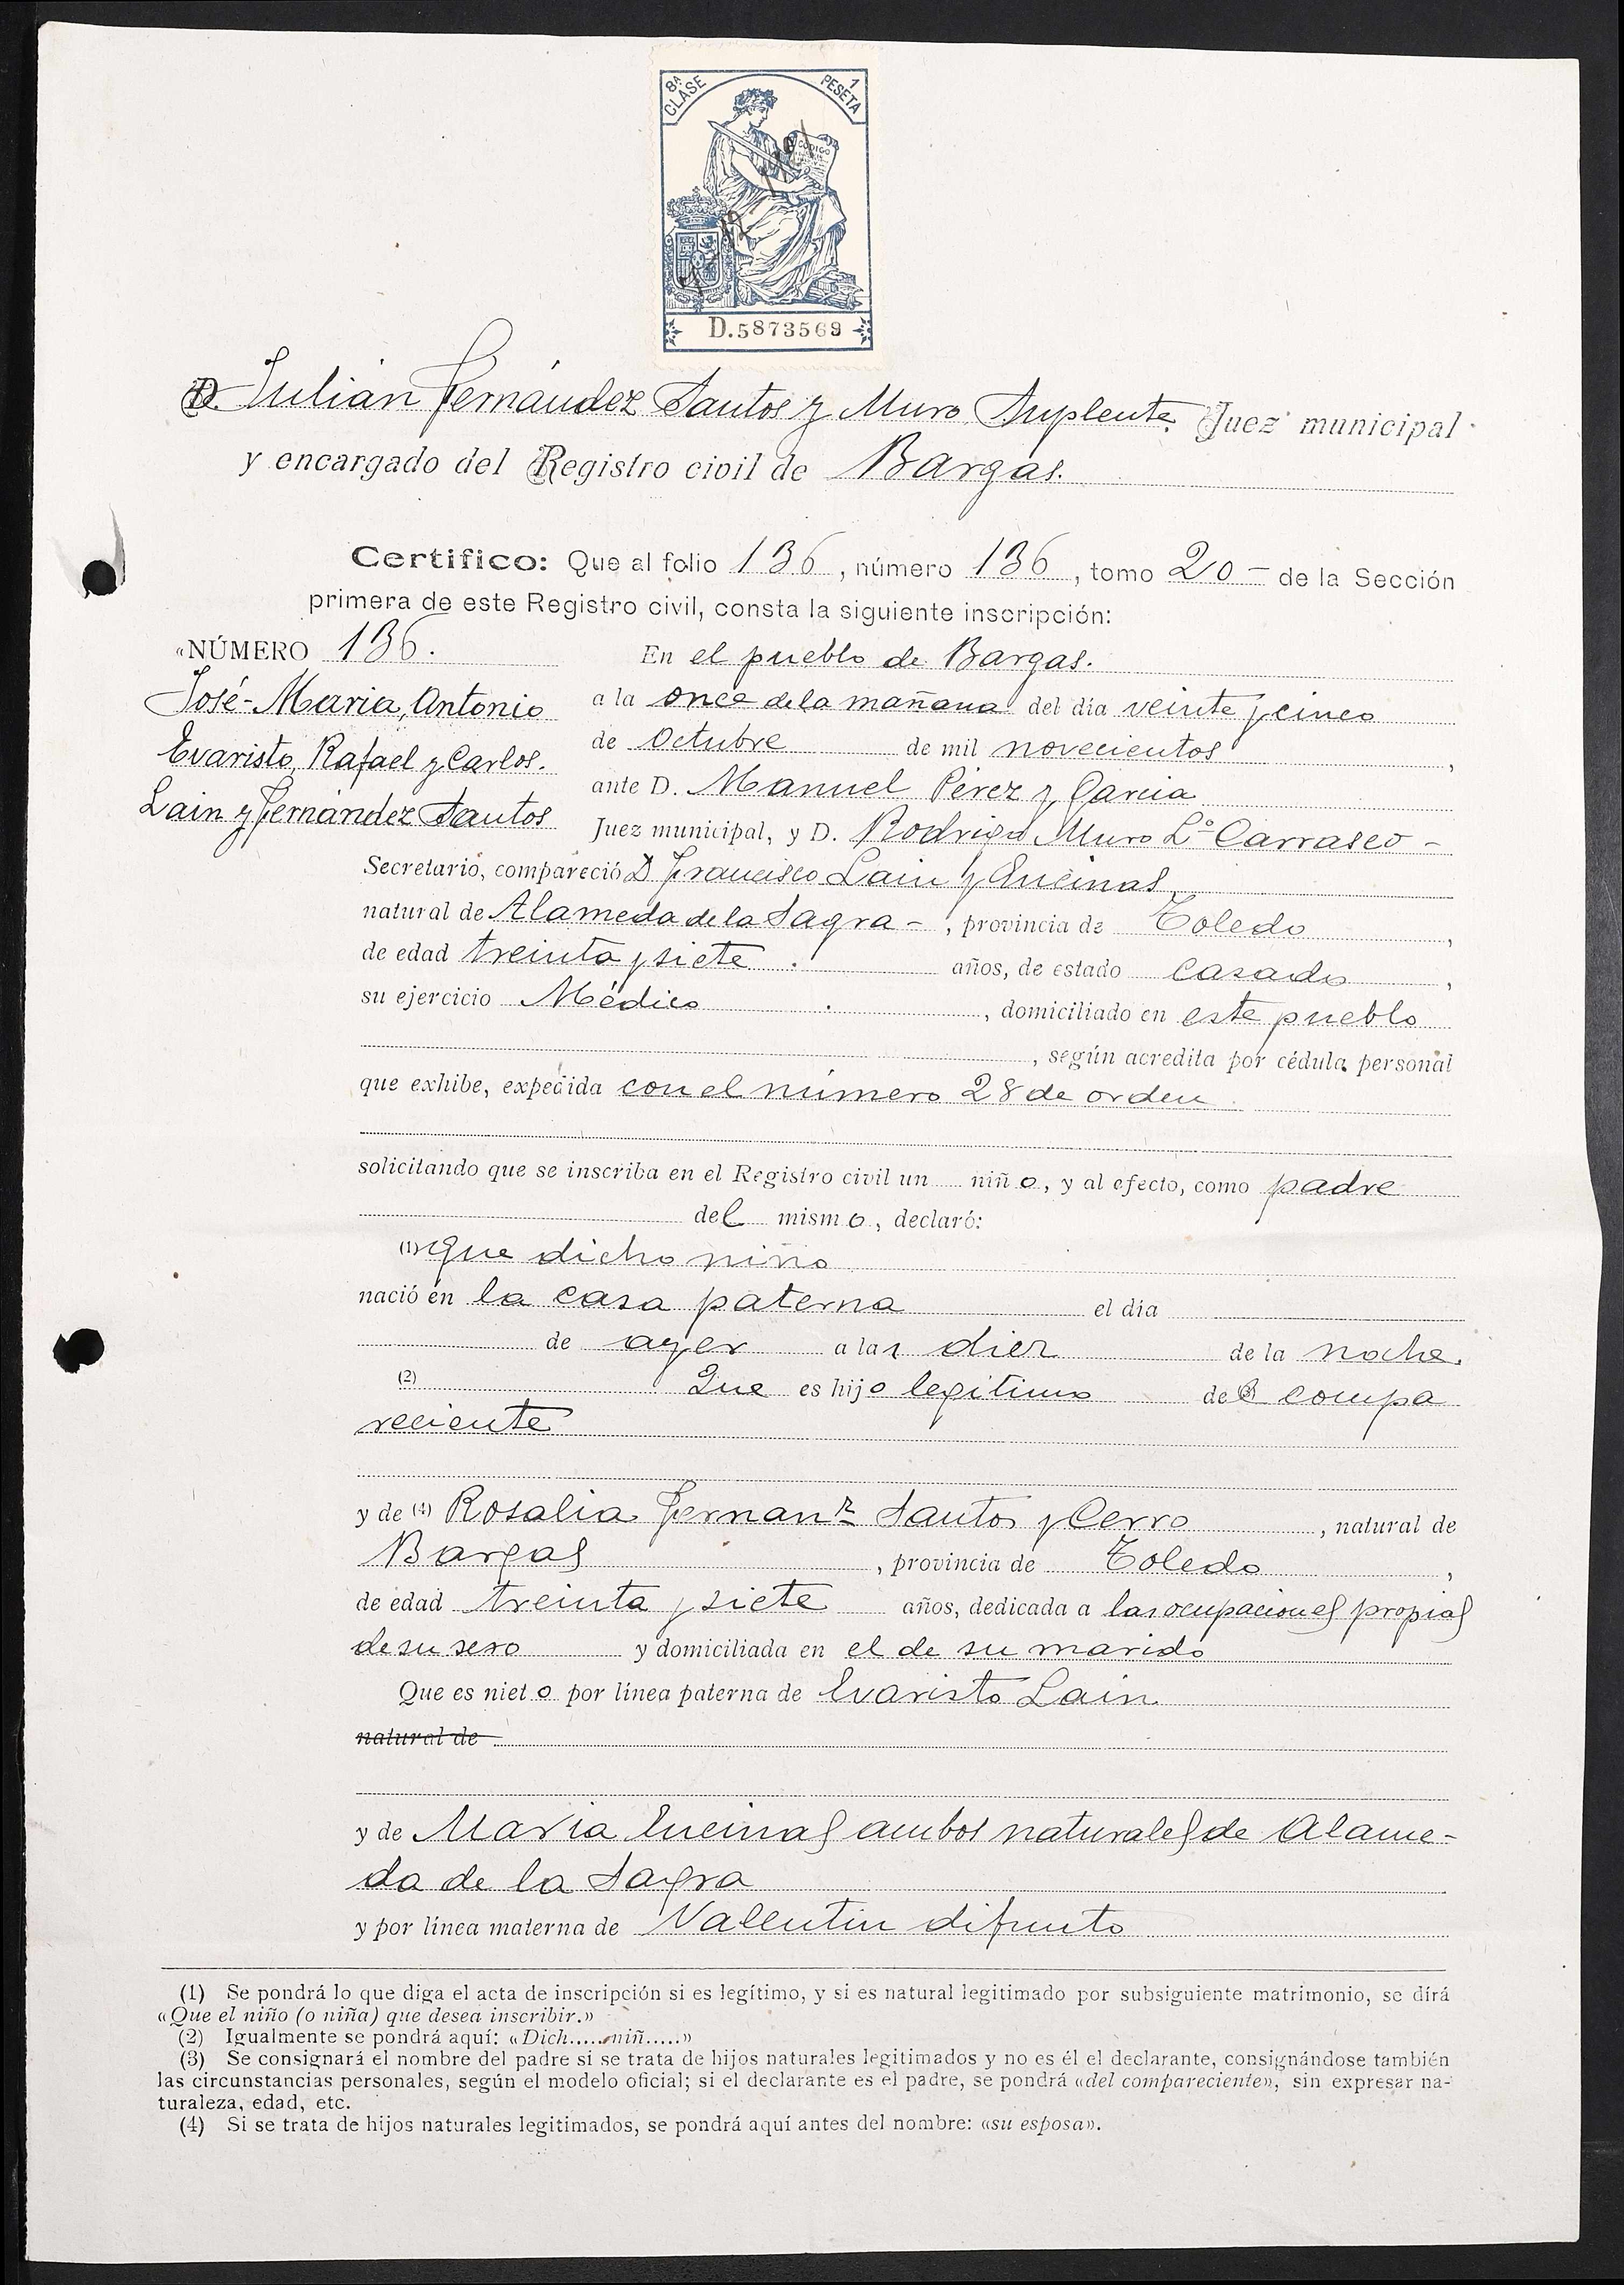 8ª CLASE 1 PESETA
CÓDIGO
D.5873569
D. Julián Fernández Santos y Muro, Suplente, Juez municipal
y encargado del Registro civil de Bargas.
Certifico: Que al folio 136, número 136, tomo 20 - de la Sección
primera de este Registro civil, consta la siguiente inscripción:
«NÚMERO 136.
José-Maria, Antonio
Evaristo, Rafael y Carlos.
Lain y Fernández Santos
En el pueblo de Bargas.
a la once de la mañana del día veinte y cinco
de Octubre de mil novecientos,
ante D. Manuel Pérez y Garcia
Juez municipal, y D. Rodrigo Muro Lº Carrasco -
Secretario, compareció D Francisco Lain y Encinas,
natural de Alameda de la Sagra -, provincia de Toledo,
de edad treinta y siete. años, de estado casado,
su ejercicio Médico., domiciliado en este pueblo
, según acredita por cédula personal
que exhibe, expedida con el número 28 de orden
solicitando que se inscriba en el Registro civil un niño, y al efecto, como padre
del mismo, declaró:
(1) que dicho niño
nació en la casa paterna el día
de ayer a las diez de la noche.
(2) Que es hijo legitimo del (3) compa
reciente
y de (4) Rosalia Fernanz Santos y Cerro, natural de
Bargas, provincia de Toledo,
de edad treinta y siete años, dedicada a las ocupaciones propias
de su sexo y domiciliada en el de su marido
Que es nieto por línea paterna de Evaristo Lain
natural de
y de Maria Encinas ambos naturales de Alame-
da de la Sagra
y por línea materna de Valentin difunto
(1) Se pondrá lo que diga el acta de inscripción si es legítimo, y si es natural legitimado por subsiguiente matrimonio, se dirá
«Que el niño (o niña) que desea inscribir.»
(2) Igualmente se pondrá aquí: «Dich.....niñ.....»
(3) Se consignará el nombre del padre si se trata de hijos naturales legitimados y no es él el declarante, consignándose también
las circunstancias personales, según el modelo oficial; si el declarante es el padre, se pondrá «del compareciente», sin expresar na-
turaleza, edad, etc.
(4) Si se trata de hijos naturales legitimados, se pondrá aquí antes del nombre: «su esposa».